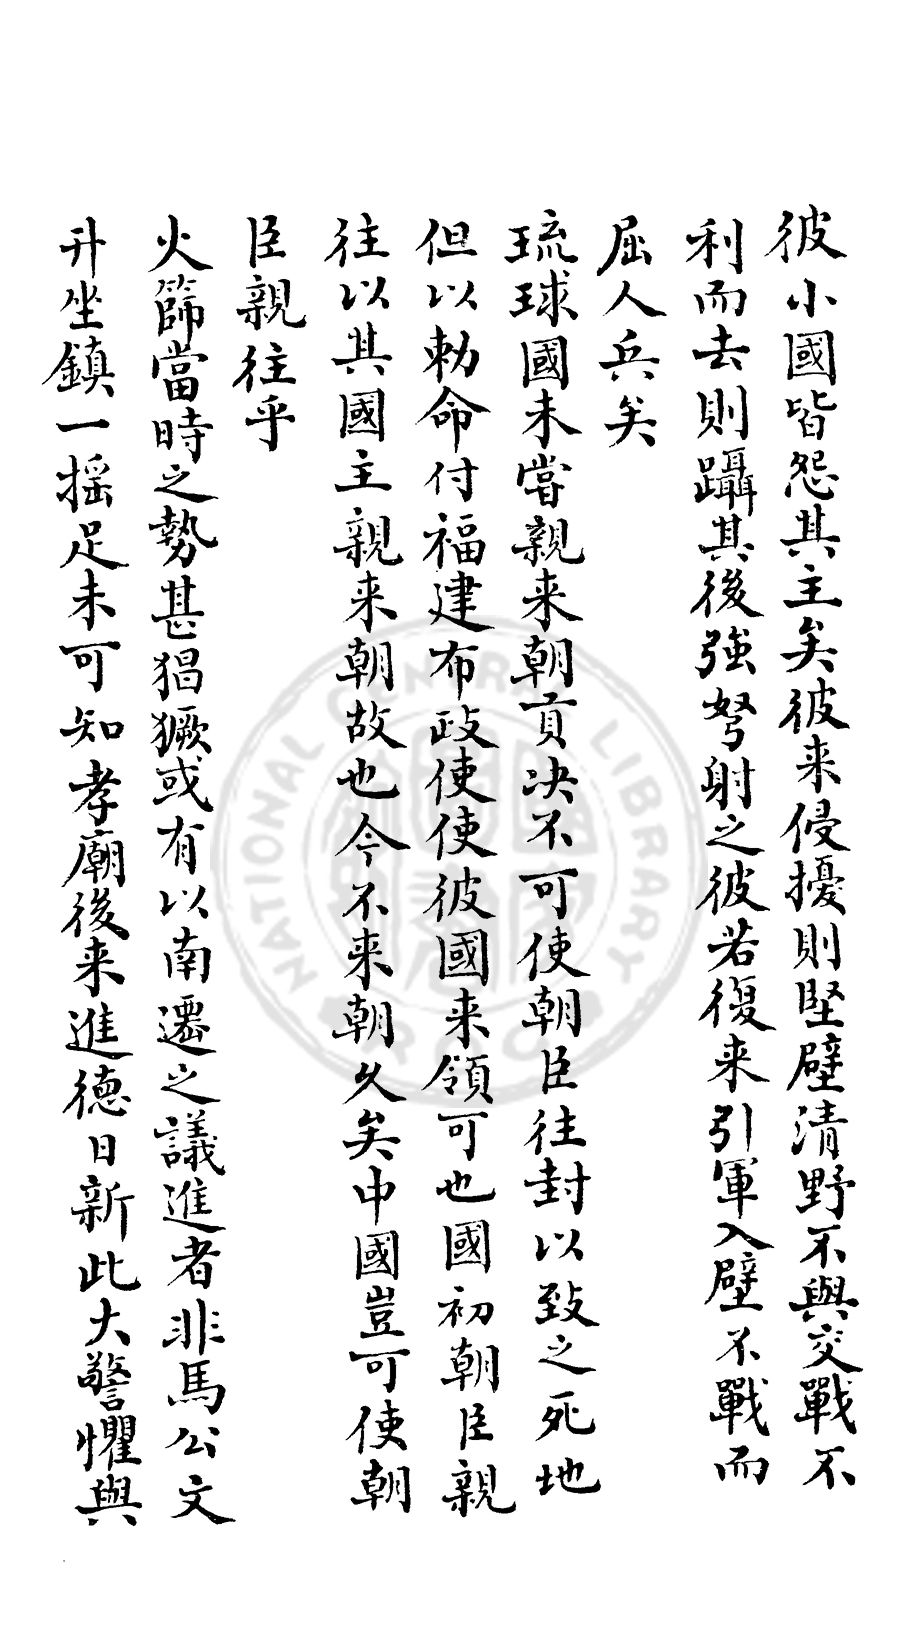 彼小國皆怨其主矣彼来侵擾則堅壁清野不與交戰不
利而去則躡其後強弩射之彼若復来引軍入壁不戰而
屈人兵矣
琉球國未嘗親来朝貢决不可使朝臣往封以致之死地
但以勅命付福建布政使使彼國来領可也國初朝臣親
往以其國主親来朝故也今不来朝久矣中國豈可使朝
臣親往乎
火篩當時之勢甚猖獗或有以南遷之議進者非馬公文
升坐鎮一摇足未可知孝廟後来進德日新此大警懼與
NATIONAL CENTRAL LIBRARY
R.O.C